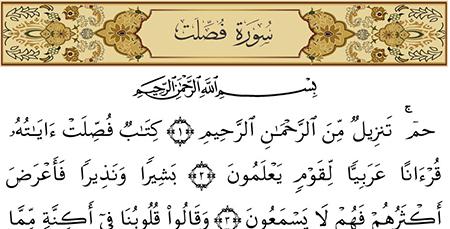 سُورَةُ فُصِّلَتْ
بِسْمِ اللَّهِ الرَّحْمَٰنِ الرَّحِيمِ
حمٓ ۚ تَنزِيلٌ مِّنَ الرَّحْمَـٰنِ الرَّحِيمِ ﴿١﴾ كِتَابٌ فُصِلَتْ ءَايَاتُهُ
قُرْءَانًا عَرَبِيًّا لِّقَوْمٍ يَعْلَمُونَ ﴿٢﴾ بَشِيرًا وَنَذِيرًا فَأَعْرَضَ
أَكْثَرُهُمْ فَهُمْ لَا يَسْمَعُونَ ﴿٣﴾ وَقَالُوا۟ قُلُوبُنَا فِىٓ أَكِنَّةٍ مِّمَّا